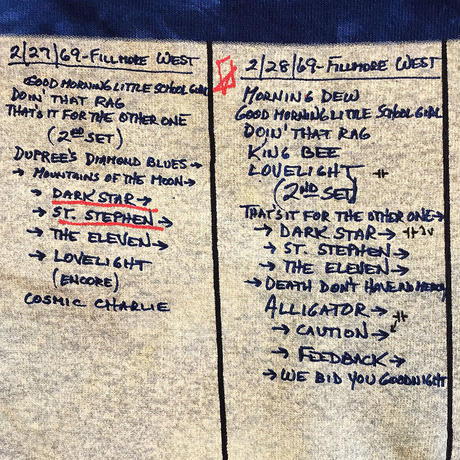 2/27/69-FILLMORE WEST
GOOD MORNING LITTLE SCHOOL GIRL
DOIN' THAT RAG
THAT'S IT FOR THE OTHER ONE
(2ND SET)
DUPREE'S DIAMOND BLUES→
→ MOUNTAINS OF THE MOON→
→ DARK STAR→
→ ST. STEPHEN→
→ THE ELEVEN→
→ LOVELIGHT
(ENCORE)
COSMIC CHARLIE
2/28/69-FILLMORE WEST
MORNING DEW
GOOD MORNING LITTLE SCHOOL GIRL
DOIN' THAT RAG
KING BEE
LOVELIGHT
(2ND SET)
THAT'S IT FOR THE OTHER ONE→
→ DARK STAR→
→ ST. STEPHEN→
→ THE ELEVEN→
→ DEATH DON'T HAVE NO MERCY
ALLIGATOR→
→ CAUTION→
→ FEEDBACK→
→ WE BID YOU GOODNIGHT